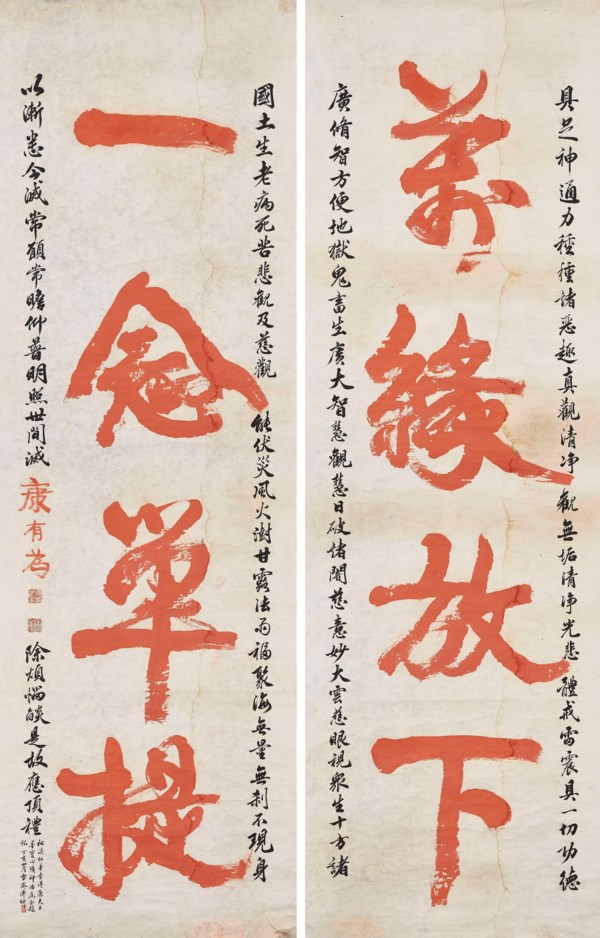 具足神通力種種諸惡趣真觀清淨觀無垢清淨光悲體戒雷震具一切功德
萬緣放下
廣脩智方便地獄鬼畜生廣大智慧觀慧日破諸闇慈意妙大雲慈眼視眾生十方諸
國土生老病死苦悲觀及慈觀能伏災風火澍甘露法雨福聚海無量無剎不現身
一念單提
以漸悉令滅常願常瞻仰普明照世間滅
康有為
除煩惱燄是故應頂禮